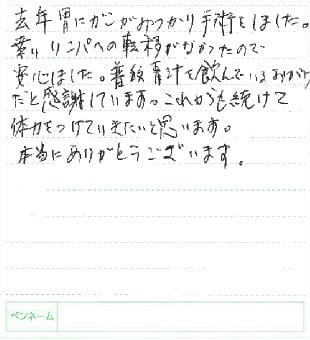 去年胃にがんがみつかり手術をしました。
幸いリンパへの転移がなかったので
安心しました。普段青汁を飲んでいるおかげ
だと感謝しています。これからも続けて
体力をつけていきたいと思います。
本当にありがとうございます。
ペンネーム